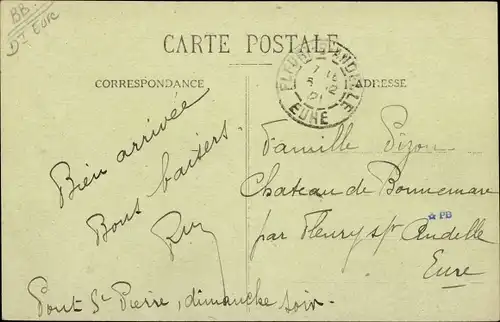 BB.
Dt Eure
CARTE POSTALE
CORRESPONDANCE
ADRESSE
FLEURY-S-ANDELLE
EURE
Bien arrivée
Bons baisers.
Famille Pizon
Chateau de Bonnemare
par Fleury s/ Andelle
Eure
☆ PB
Pont St Pierre, dimanche soir.